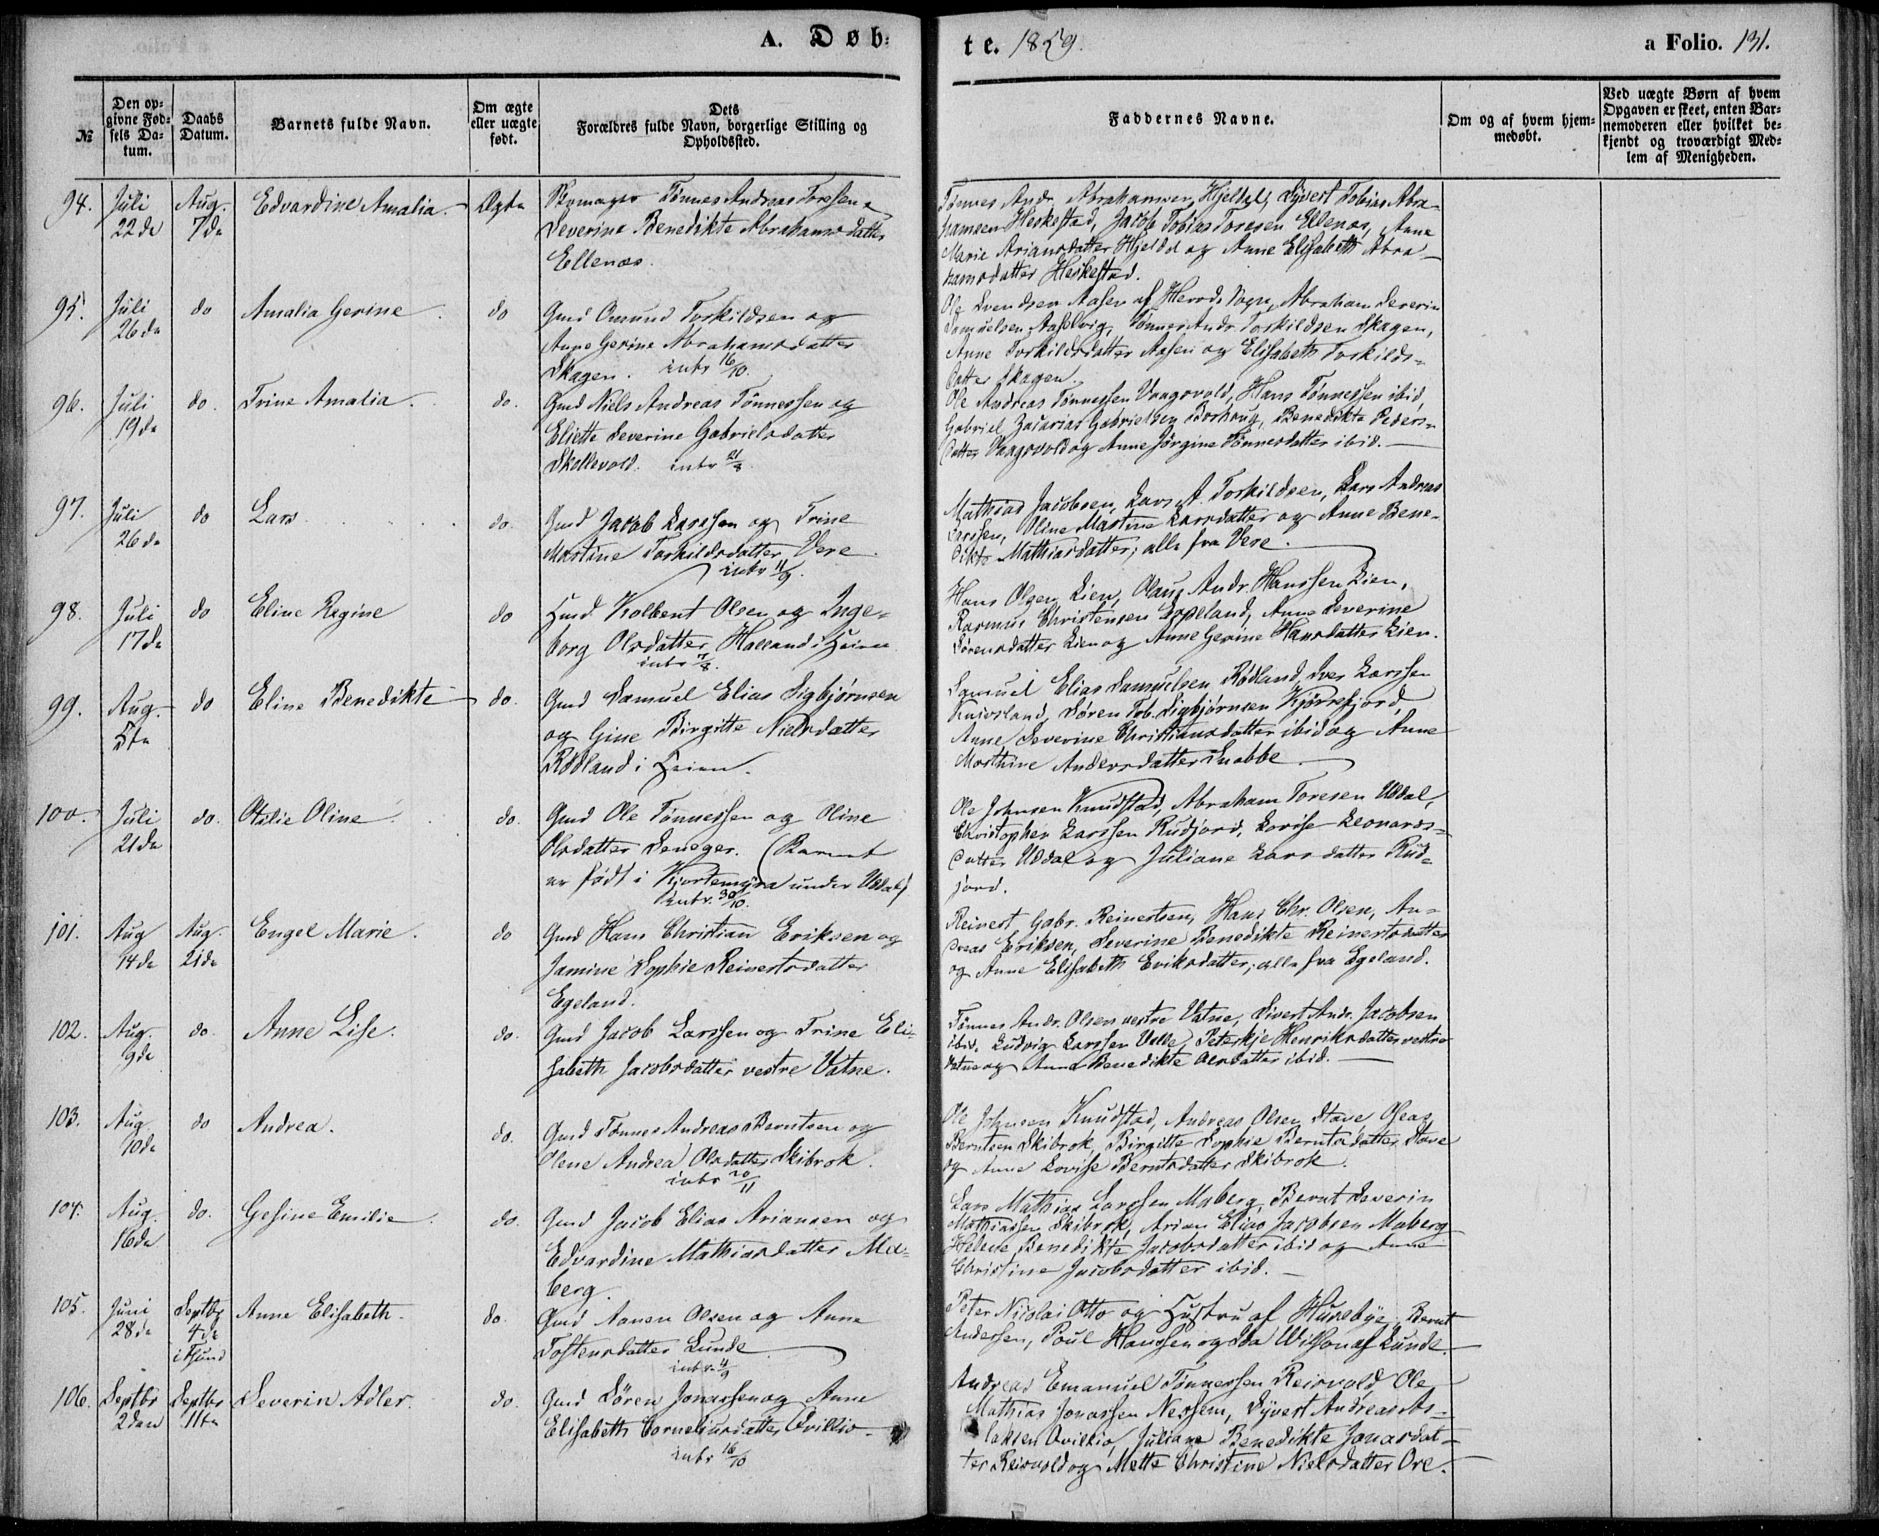 A. Døb-
te. 1859.
a Folio. 131.
№
Den op-
givne Fød-
sels Da-
tum.
Daabs
Datum.
Barnets fulde Navn.
Om ægte
eller uægte
født.
Dets
Forældres fulde Navn, borgerlige Stilling og
Opholdssted.
Faddernes Navne.
Om og af hvem hjem-
medøbt.
Ved uægte Børn af hvem
Opgaven er skeet, enten Bar-
nemoderen eller hvilket be-
kjendt og troværdigt Med-
lem af Menigheden.
94. Juli 22de Aug. 7de Edvardine Amalia. Ægte
Skomager Tønnes Andreas Toresen &
Severine Benedikte Abrahamsdatter
Ellenæs.
Tønnes Andr. Abrahamsen Hjeldal, Syvert Tobias Abra-
hamsen Heskestad, Jacob Tobias Toresen Ellenæs, Anna
Marie Ariansdatter Hjeldal og Anne Elisabeth Abra-
hamsdatter Heskestad.
95. Juli 26de do Amalia Gerine do
Gmd Omund Torkildsen og
Anne Gerine Abrahamsdatter
Skagen. intr 16/10.
Ole Svendsen Aasen af Herrods Sogn, Abraham Severin
Samuelsen, Tønnes Andr. Torkildsen Skagen,
Anne Torkildsdatter Aasen og Elisabeth Torkilds-
datter Skagen.
96. Juli 19de do. Trine Amalia. do.
Gmd Niels Andreas Tønnessen og
Eliette Severine Gabrielsdatter
Skollevold. intr 21/8.
Ole Andreas Tønnessen Vaagsvold, Hans Tønnessen ibid,
Gabriel Zacarias Gabrielsen Borhaug, Benedikte Peders-
datter Vaagsvold og Anne Jørgine Tønnesdatter ibid.
97. Juli 26de do Lars do.
Gmd Jacob Larssen og Trine
Martine Torkildsdatter Vere.
intr 11/9.
Mathias Jacobsen, Lars A. Torkildsen, Lars Andreas
Larssen, Oline Martine Larsdatter og Anne Bene-
dikte Mathiasdatter; alle fra Vere.
98. Juli 17de do Eline Regine do
Hmd Kolbent Olsen og Inge-
borg Olsdatter Halland i Heien
intr 7/8.
Hans Olsen Lien, Olaus Andr. Hanssen Lien,
Rasmus Christensen Eppeland, Anne Severine
Sørensdatter Lien og Anne Gerine Hansdatter Lien.
99. Aug. 5te do Eline Benedikte do.
Gmd Samuel Elias Sigbjørnsen
og Gine Birgitte Nielsdatter
Rødland i Heien.
Samuel Elias Samuelsen Rødland, Iver Larssen
Kaivsland, Søren Tob. Sigbjørnsen Kjørrefjord,
Anne Severine Christiansdatter ibid og Anne
Marthine Andersdatter Snabbe
100. Juli 21de do. Otilie Oline. do.
Gmd Ole Tønnessen og Oline
Olsdatter Seneger. (Barnet
er født i Kjortemyra under Uddal)
intr. 30/10.
Ole Johnsen Knudstad, Abraham Toresen Uddal,
Christopher Larssen Rudjord, Lovise Leonards-
datter Uddal og Juliane Larsdatter Rud-
jord.
101. Aug 14de Aug. 21de Engel Marie. do
Gmd Hans Christian Eriksen og
Jamine Sophie Reinertsdatter
Egeland.
Reinert Gabr. Reinertsen, Hans Chr. Olsen, An-
dreas Eriksen, Severine Benedikte Reinertsdatter
og Anne Elisabeth Eriksdatter; alle fra Egeland.
102. Aug. 9de do. Anne Lise. do.
Gmd Jacob Larssen og Trine Eli-
sabeth Jacobsdatter vestre Vatne.
Tønnes Andr. Olsen vestre Vatne, Sivert Andr. Jacobsen
ibid. Ludvig Larssen Velle, Peterkje Henriksdatter vestre
Vatne og Anne Benedikte Olsdatter ibid.
103. Aug 10de do Andrea. do.
Gmd Tønnes Andreas Berntsen og
Olene Andrea Olsdatter Skibrok.
intr 20/11
Ole Johnsen Knudstad, Andreas Olsen Stave, Oleas
Berntsen Skibrok, Birgitte Sophie Berntsdatter Stave
og Anne Lovise Berntsdatter Skibrok.
104. Aug. 16de do. Gesine Emilie. do.
Gmd Jacob Elias Ariansen og
Edvardine Mathiasdatter Ma-
berg.
Lars Mathias Larssen Maberg, Bernt Severin
Mathiassen Skibrok, Arian Elias Jacobsen Maberg
Helene Benedikte Jacobsdatter ibid og Anne
Christine Jacobsdatter ibid.
105. Juni 28de Septbr 4de i Lund Anne Elisabeth. do.
Gmd Aanen Olsen og Anne
Tostensdatter Lunde
intr. 4/9
Peter Nicolai Otto og Hustru af Husebye, Bernt
Andersen, Poul Hanssen og Ida Wilson af Lunde.
106. Septbr 2den Septbr 11te Severin Adler. do.
Gmd Søren Jonassen og Anne
Elisabeth Corneliusdatter Qvilljo
intr 16/10
Andreas Emanuel Tønnessen Reirvold, Ole
Mathias Jonassen Nessem, Syvert Andreas As-
laksen Qvilljo, Juliane Benedikte Jonasdat-
ter Reisvold og Mette Christine Nielsdatter Ore.